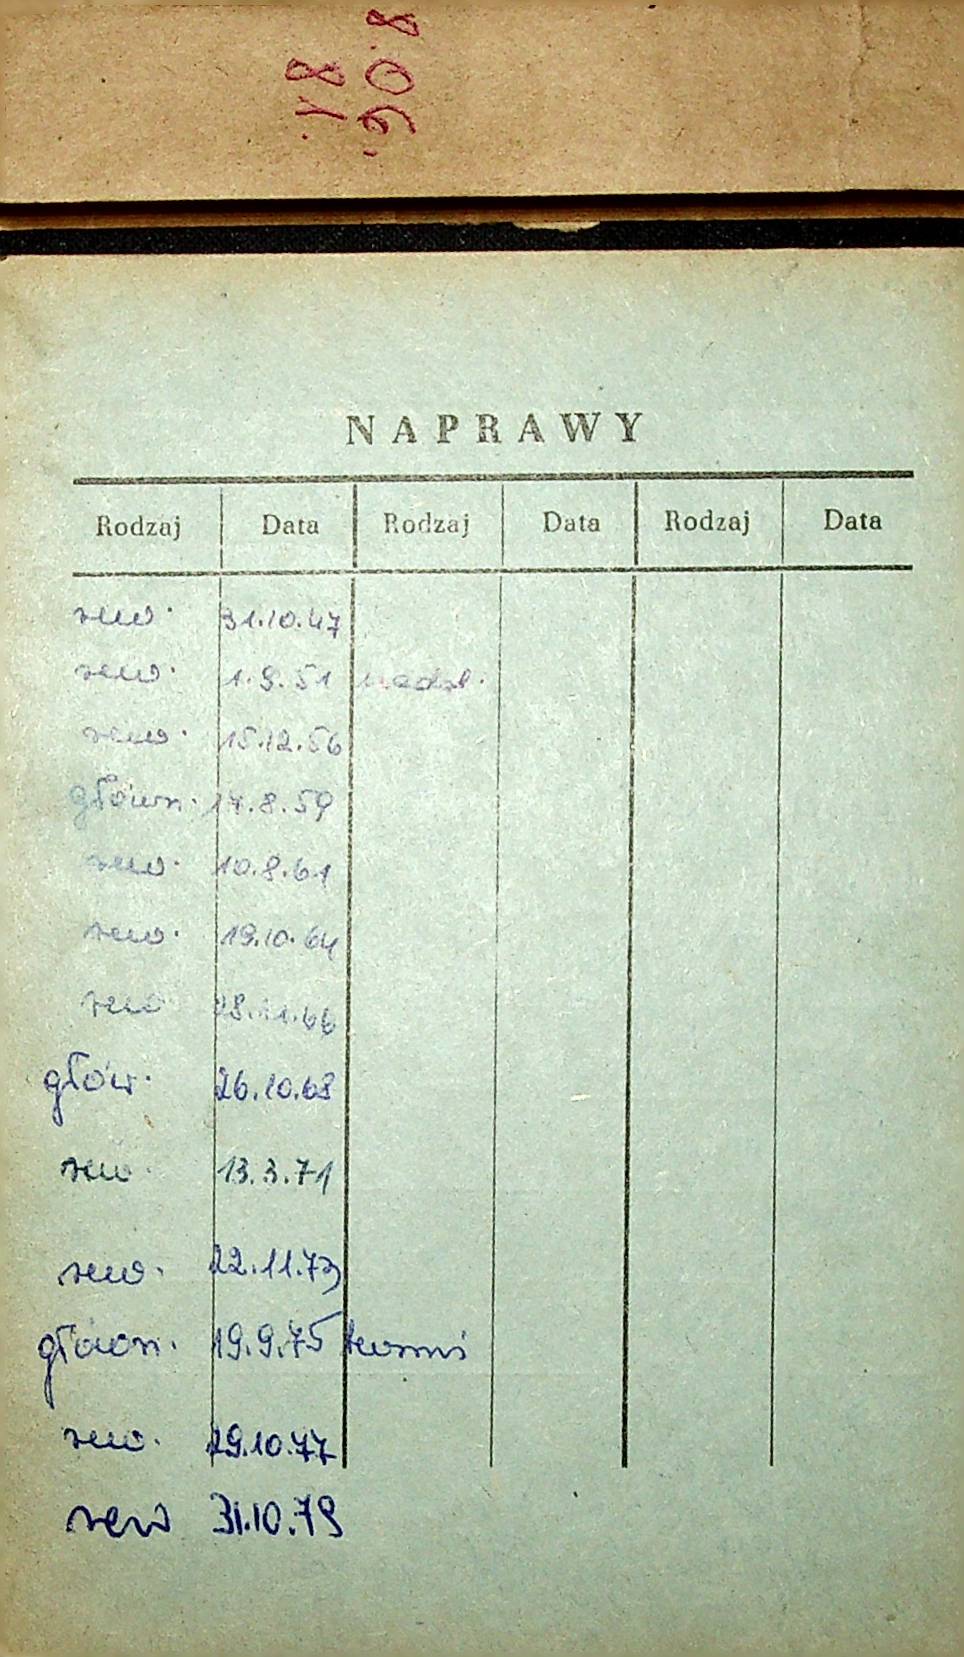 NAPRAWY
Rodzaj Data Rodzaj Data Rodzaj Data
rew. 31.10.47
rew. 1.9.51
rew. 15.12.56
główn. 17.8.59
rew. 10.8.61
rew. 19.10.64
rew 28.11.66
głów. 26.10.68
rew. 13.3.71
rew. 22.11.73
główn. 19.9.75
rew. 29.10.77
rew 31.10.79